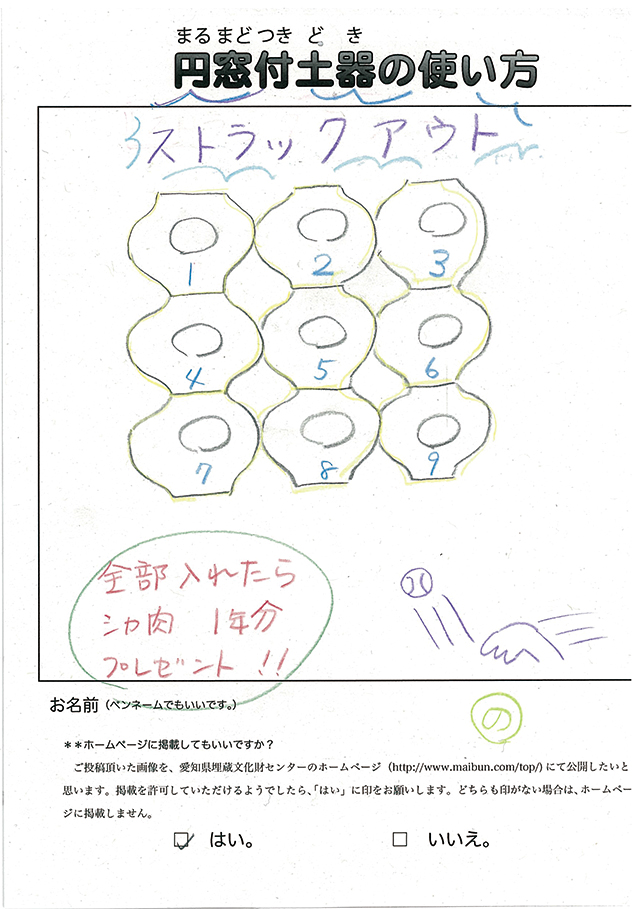 まるまどつきどき
円窓付土器の使い方
ストラックアウト
1 2 3
4 5 6
7 8 9
全部入れたら
シカ肉 1年分
プレゼント!!
お名前(ペンネームでもいいです。)
の
**ホームページに掲載してもいいですか?
ご投稿頂いた画像を、愛知県埋蔵文化財センターのホームページ(http://www.maibun.com/top/)にて公開したいと
思います。掲載を許可していただけるようでしたら、「はい」に印をお願いします。どちらも印がない場合は、ホームペー
ジに掲載しません。
はい。 いいえ。